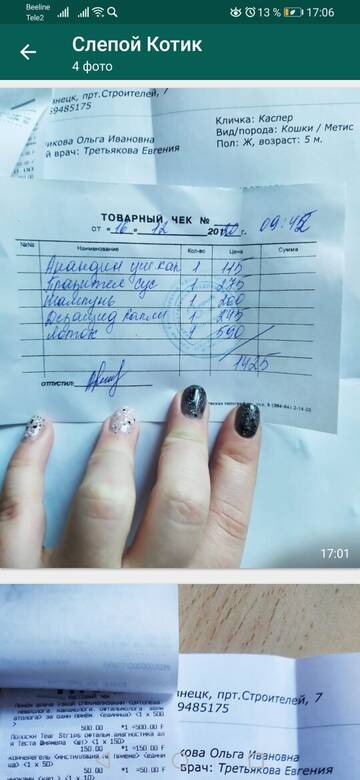 Beeline
Tele2
13 %
17:06
Слепой Котик
4 фото
нецк, прт.Строителей, 7
59485175
икова Ольга Ивановна
й врач: Третьякова Евгения
Кличка: Каспер
Вид/порода: Кошки / Метис
Пол: Ж, возраст: 5 м.
ТОВАРНЫЙ ЧЕК №
от « 16 » 12 20 г. 09:45
№№ Наименование Кол-во Цена Сумма
Анандин уш кап 1 115
Празител сус 1 275
Шампунь 1 200
капли 1 245
Лоток 1 590
1425
ОТПУСТИЛ:
17:01
нецк, прт.Строителей, 7
9485175
кова Ольга Ивановна
врач: Третьякова Евгения
невролога, кардиолога, офтальмолога
за один прием
500.00 *1 =500.00
Полоски Tear Strips офтальм.диагностика
я Теста Ширмера (шт) (1 x 150
150.00 *1 =150.00
(1 x 50)
50.00 *1 =50.00